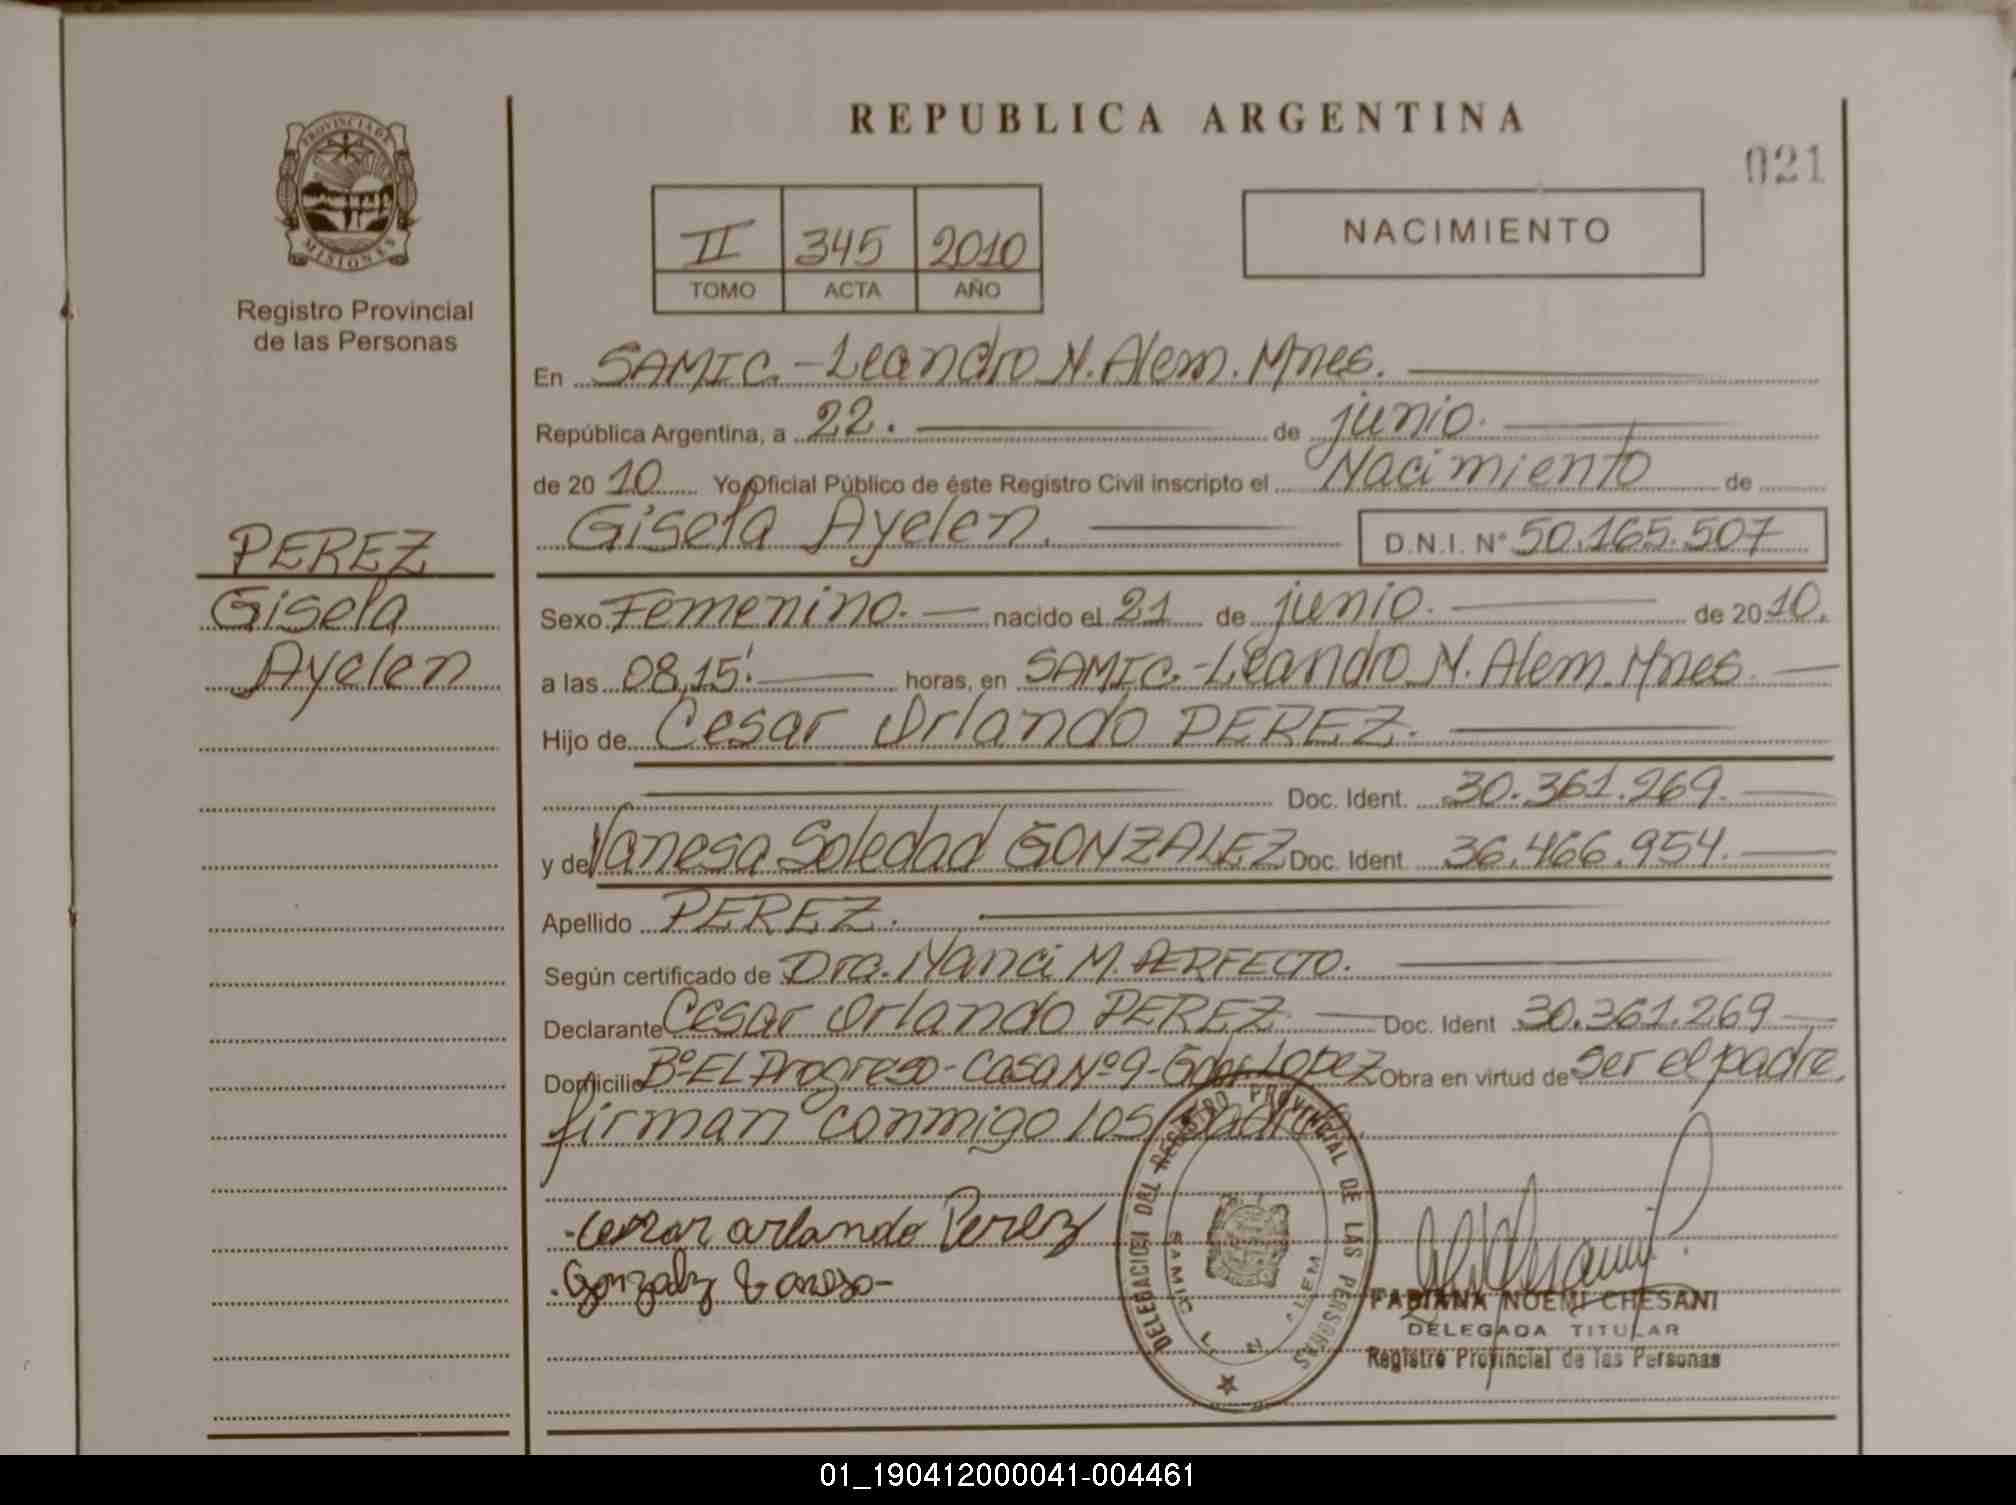 REPUBLICA ARGENTINA
021
PROVINCIA DE
MISIONES
Registro Provincial
de las Personas
II 345 2010
TOMO ACTA AÑO
NACIMIENTO
En SAMIC.-Leandro N. Alem. Mnes.
República Argentina, a 22. de junio.
de 20 10 Yo Oficial Público de éste Registro Civil inscripto el Nacimiento de
Gisela Ayelen. D.N.I. Nº 50.165.507
PEREZ
Gisela
Ayelen
Sexo Femenino. nacido el 21 de junio. de 20 10.
a las 08,15'. horas, en SAMIC.-Leandro N. Alem. Mnes.
Hijo de Cesar Orlando PEREZ.
Doc. Ident. 30.361.269.
y de Vanesa Soledad GONZALEZ Doc. Ident. 36.466.954.
Apellido PEREZ.
Según certificado de Dra. Nanci M. PERFECTO.
Declarante Cesar Orlando PEREZ Doc. Ident 30.361.269
Domicilio Bº El Progreso - Casa Nº 9 - Gdor. Lopez Obra en virtud de ser el padre,
firman conmigo los padres.
DELEGACION DEL REGISTRO PROVINCIAL DE LAS PERSONAS
SAMIC L. N. ALEM
Cesar orlando Perez
Gonzalez
FABIANA NOEMI CHESANI
DELEGADA TITULAR
Registro Provincial de las Personas
01_190412000041-004461